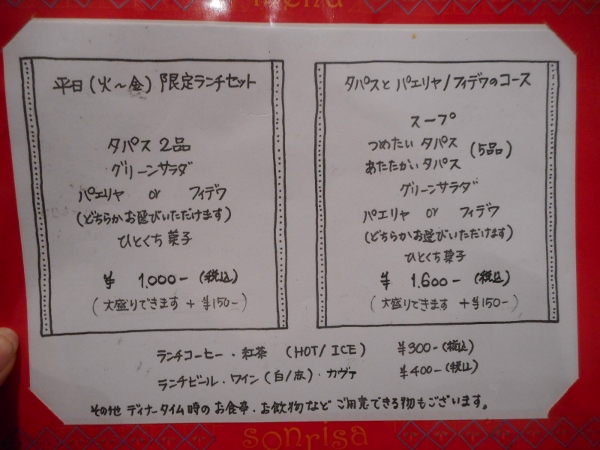 menu
平日(火～金) 限定ランチセット
タパス 2品
グリーンサラダ
パエリャ or フィデワ
(どちらかお選びいただけます)
ひとくち菓子
¥ 1,000- (税込)
(大盛りできます +¥150-)
タパスと パエリャ/フィデワのコース
スープ
つめたい タパス
あたたかい タパス (5品)
グリーンサラダ
パエリャ or フィデワ
(どちらかお選びいただけます)
ひとくち菓子
¥ 1,600- (税込)
(大盛りできます +¥150-)
ランチコーヒー・紅茶 (HOT/ICE) ¥300- (税込)
ランチビール・ワイン(白/赤)・カヴァ ¥400- (税込)
その他 ディナータイム時のお食事・お飲物など ご用意できる物もございます。
sonrisa